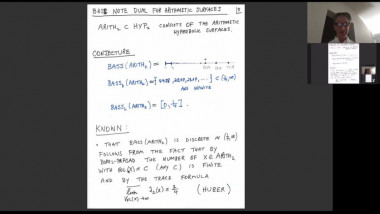 BASS NOTE DUAL FOR ARITHMETIC SURFACES
ARITH₂ ⊂ HYP₂ CONSISTS OF THE ARITHMETIC
HYPERBOLIC SURFACES.
CONJECTURE
BASS(ARITH₂) =
BASS₂(ARITH₂) = [0, 1/4].
KNOWN:
• THAT BASS(ARITH₂) IS DISCRETE IN (1/4, ∞)
FOLLOWS FROM THE FACT THAT BY
BOREL-PRASAD THE NUMBER OF X ∈ ARITH₂
WITH VOL(X) ≤ C (ANY C) IS FINITE
AND BY THE TRACE FORMULA
lim λ₁(X) = 1/4 (HUBER)
VOL(X)→∞